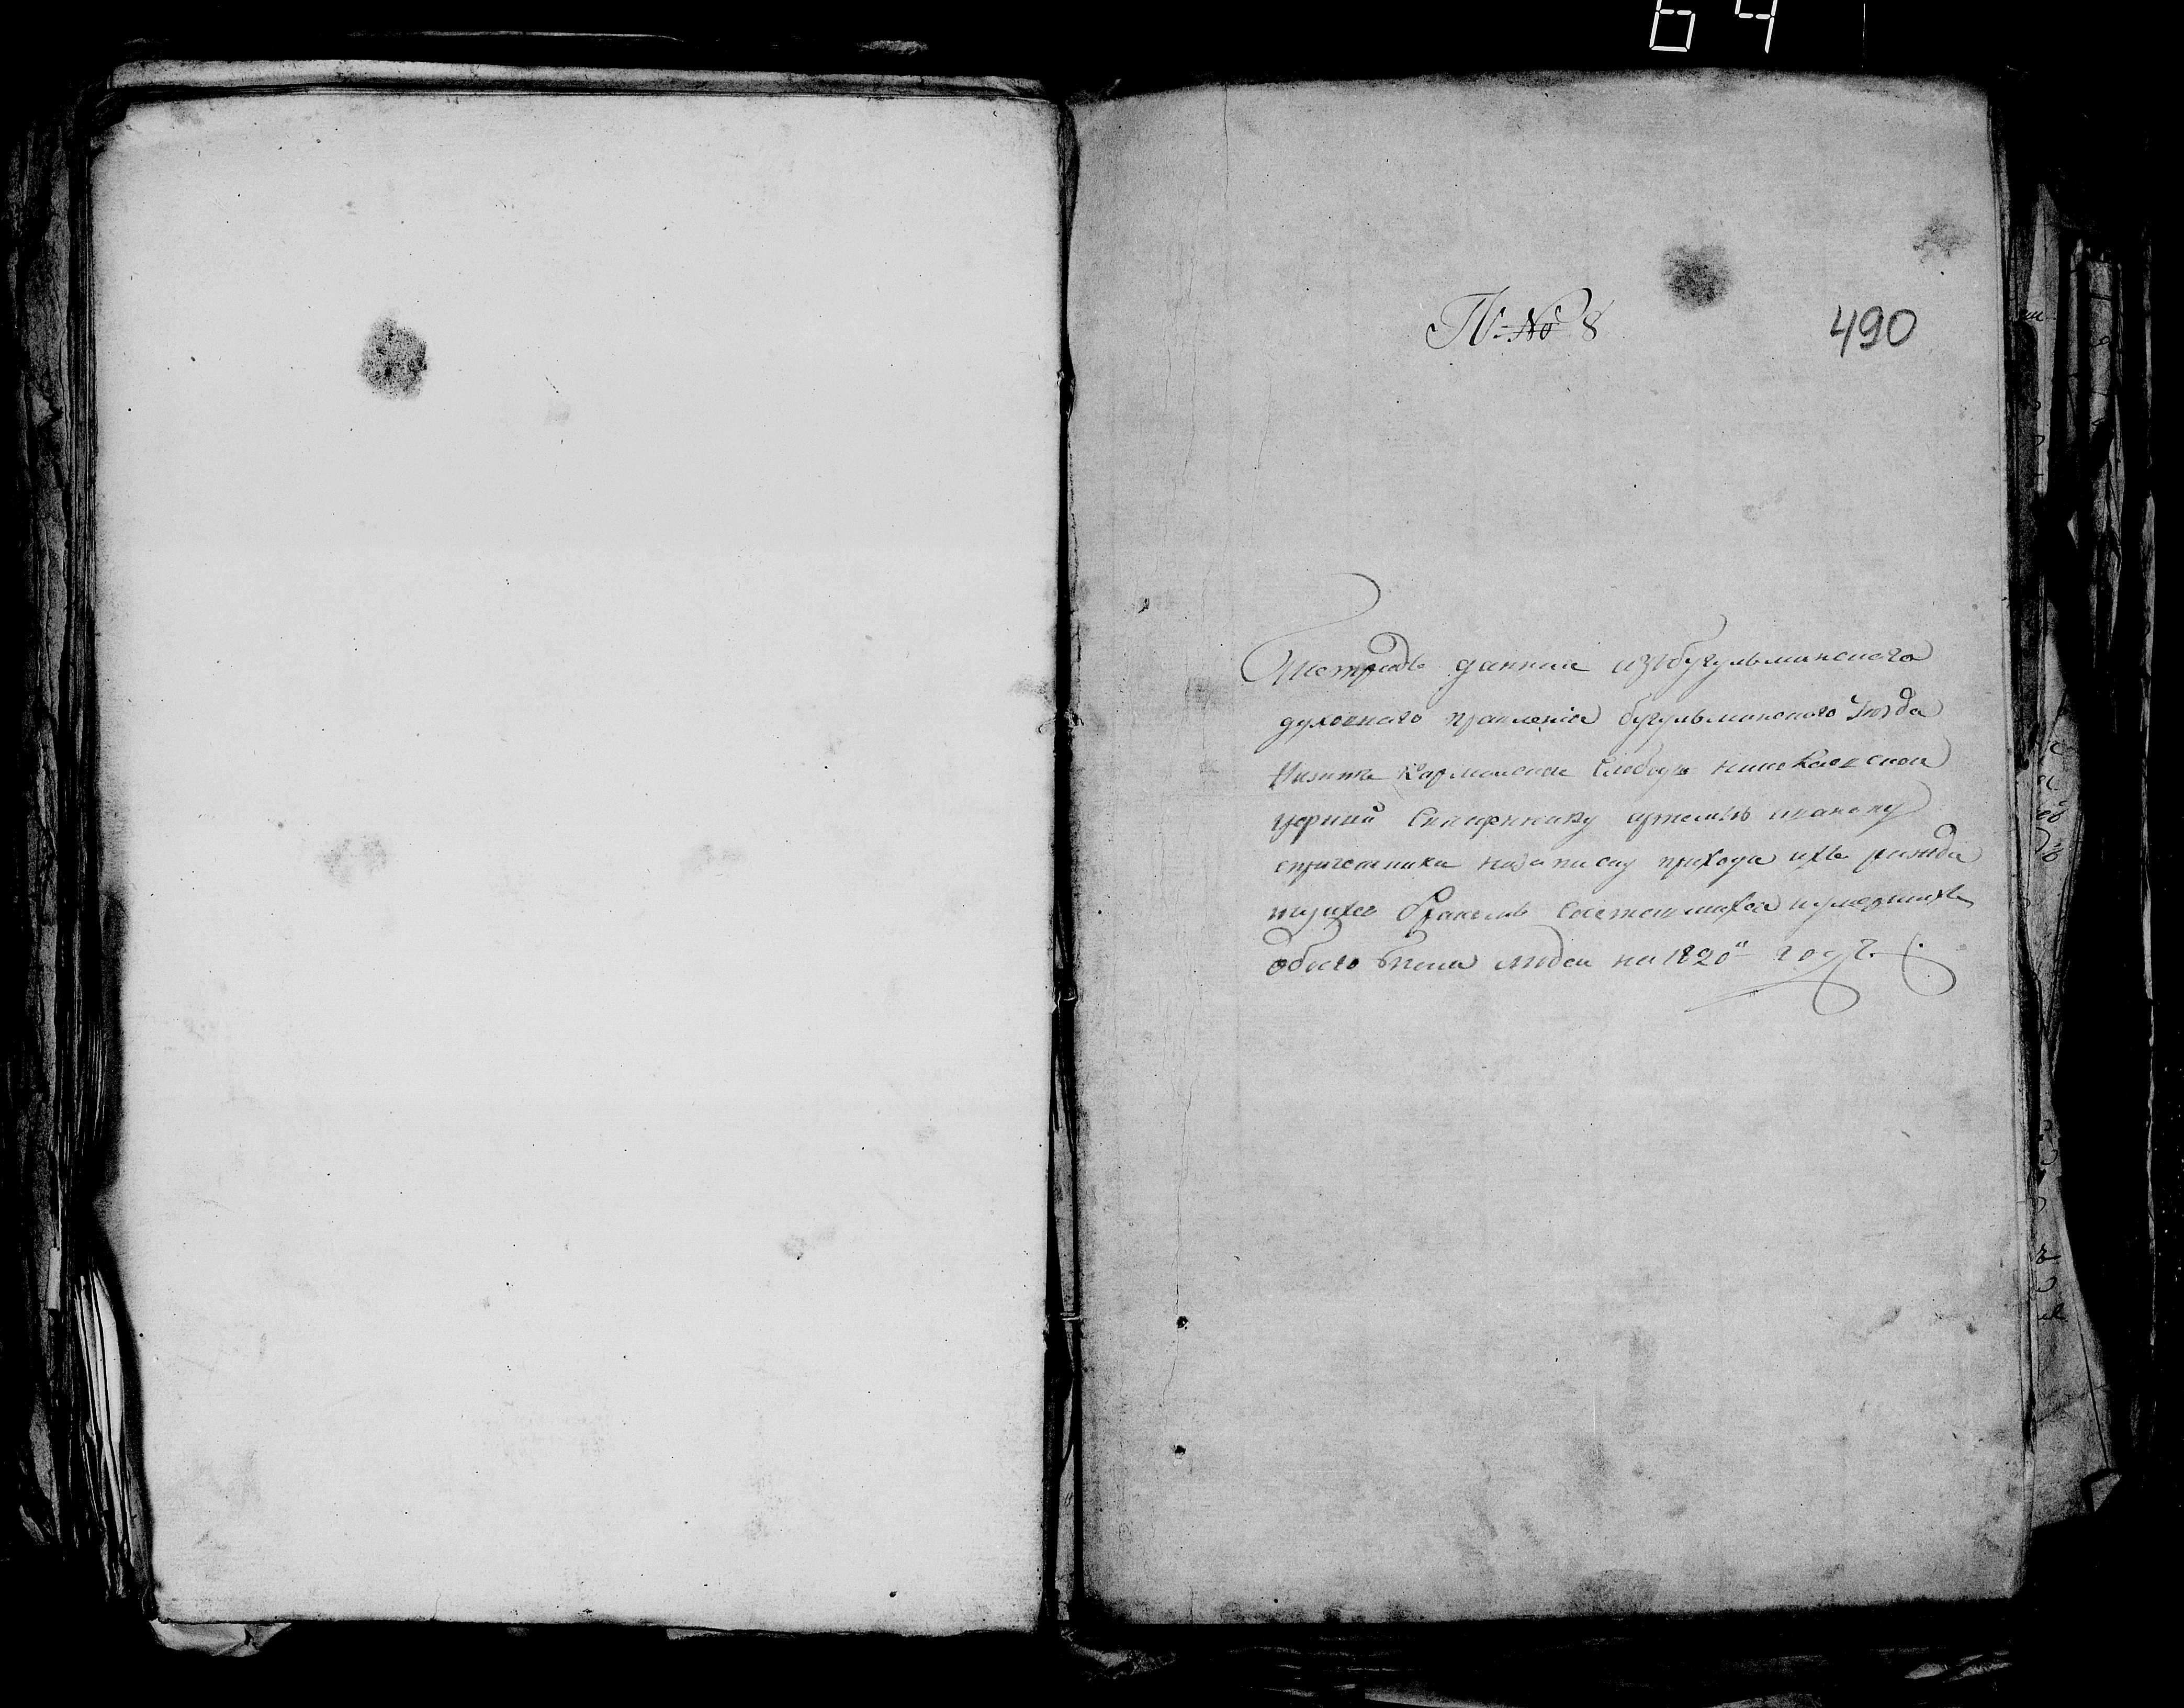 64
№ 8
490
Тетрадь данная изъбугульминскаго
духовнаго правления бугульминскаго уезда
кармалской слободы николаевской
церкви священнику
спричетники назаписку прихода ихъ рожда
ющихся браковъ состоящихся иумершихъ
обоего пола людей на 1820й годъ